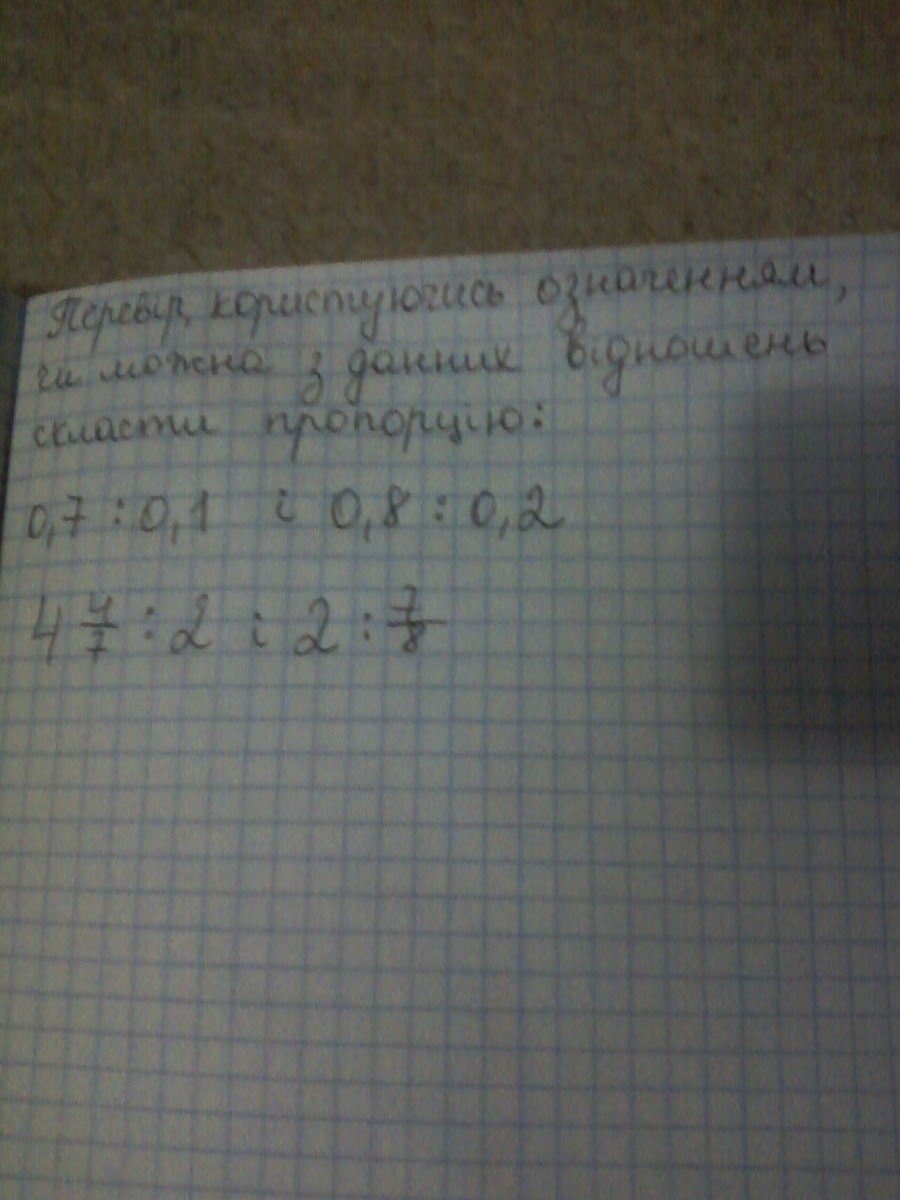 Перевір, користуючись означенням,
чи можна з данних відношень
скласти пропорцію:
0,7 : 0,1 і 0,8 : 0,2
4 4/7 : 2 і 2 : 7/8